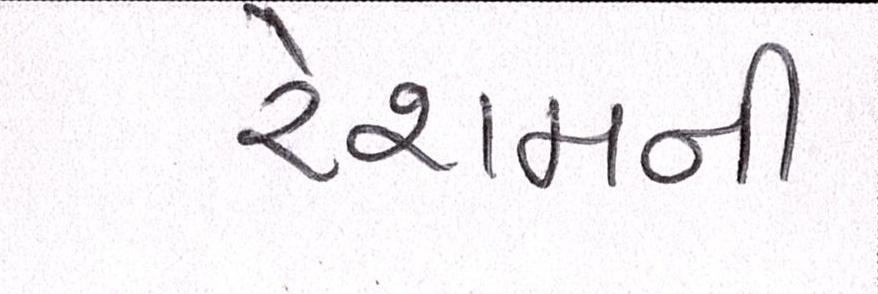 રેશમની